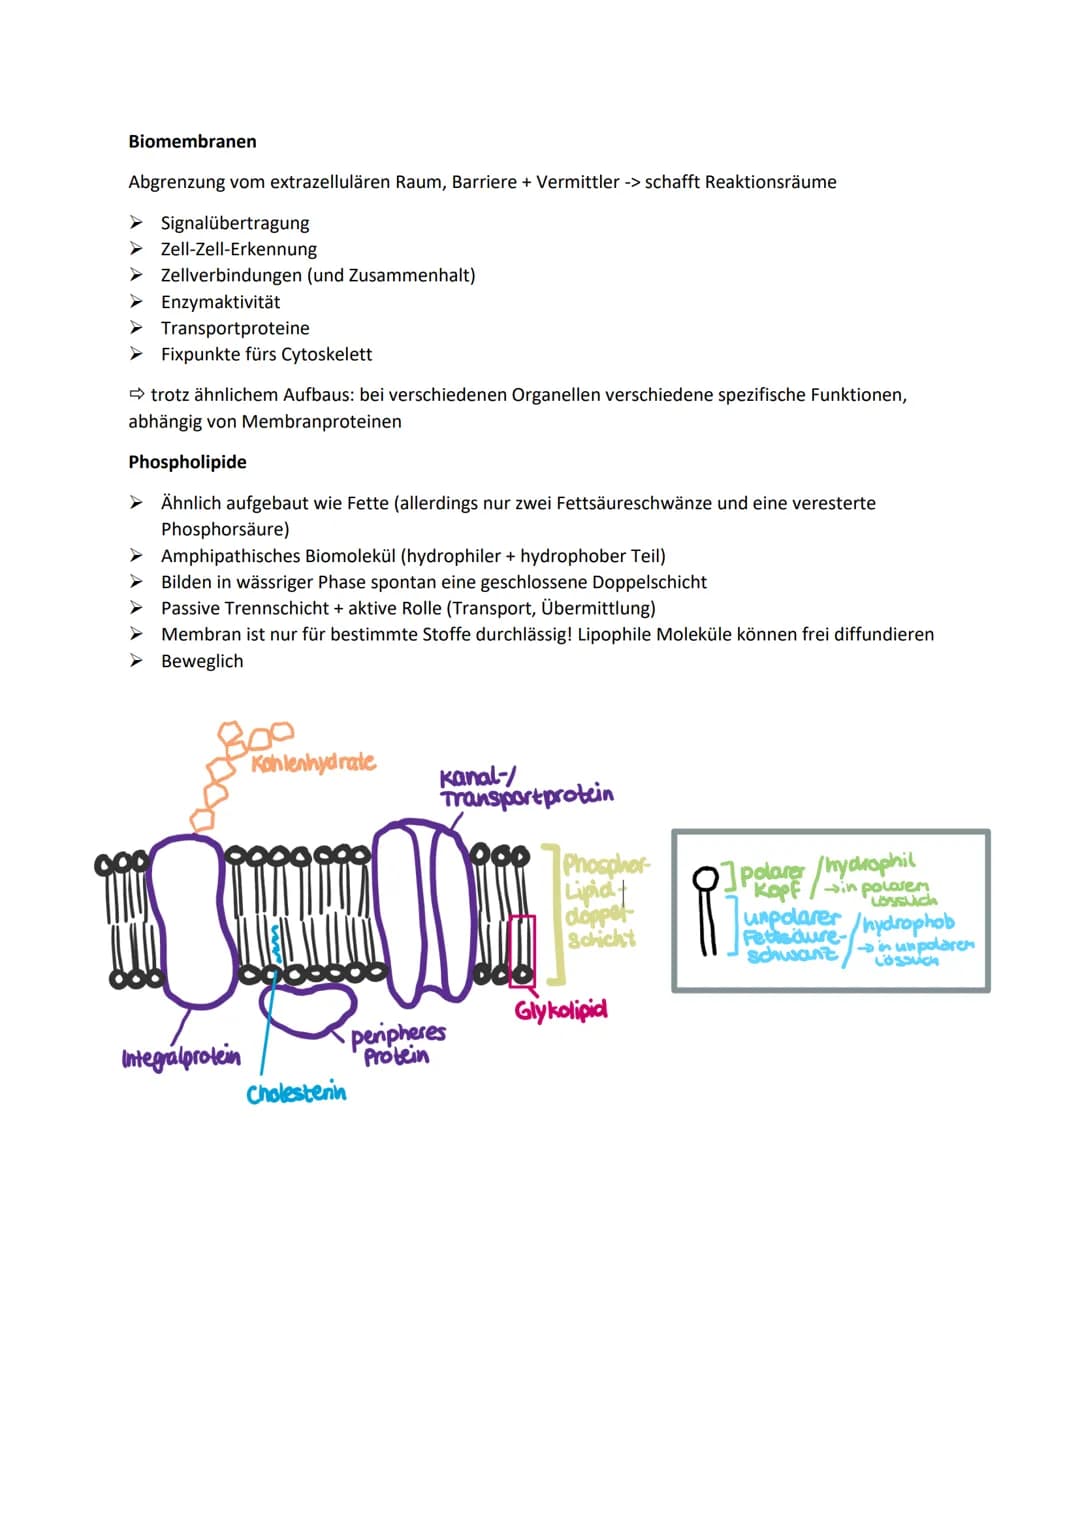 Biomembranen
Abgrenzung vom extrazellulären Raum, Barriere + Vermittler -> schafft Reaktionsräume
➢ Signalübertragung
➢ Zell-Zell-Erkennung
➢ Zellverbindungen (und Zusammenhalt)
➢ Enzymaktivität
➢ Transportproteine
➢ Fixpunkte fürs Cytoskelett
⇨ trotz ähnlichem Aufbaus: bei verschiedenen Organellen verschiedene spezifische Funktionen,
abhängig von Membranproteinen
Phospholipide
➢ Ähnlich aufgebaut wie Fette (allerdings nur zwei Fettsäureschwänze und eine veresterte
Phosphorsäure)
➢ Amphipathisches Biomolekül (hydrophiler + hydrophober Teil)
➢ Bilden in wässriger Phase spontan eine geschlossene Doppelschicht
➢ Passive Trennschicht + aktive Rolle (Transport, Übermittlung)
➢ Membran ist nur für bestimmte Stoffe durchlässig! Lipophile Moleküle können frei diffundieren
➢ Beweglich
Kohlenhydrate
Kanal-/
Transportprotein
Phosphor-
Lipid-
doppel-
schicht
Glykolipid
peripheres
Protein
Integralprotein
Cholesterin
polarer / hydrophil
Kopf / → in polarem
Löslich
unpolarer / hydrophob
Fettsäure- → in unpolarem
schwanz / Löslich